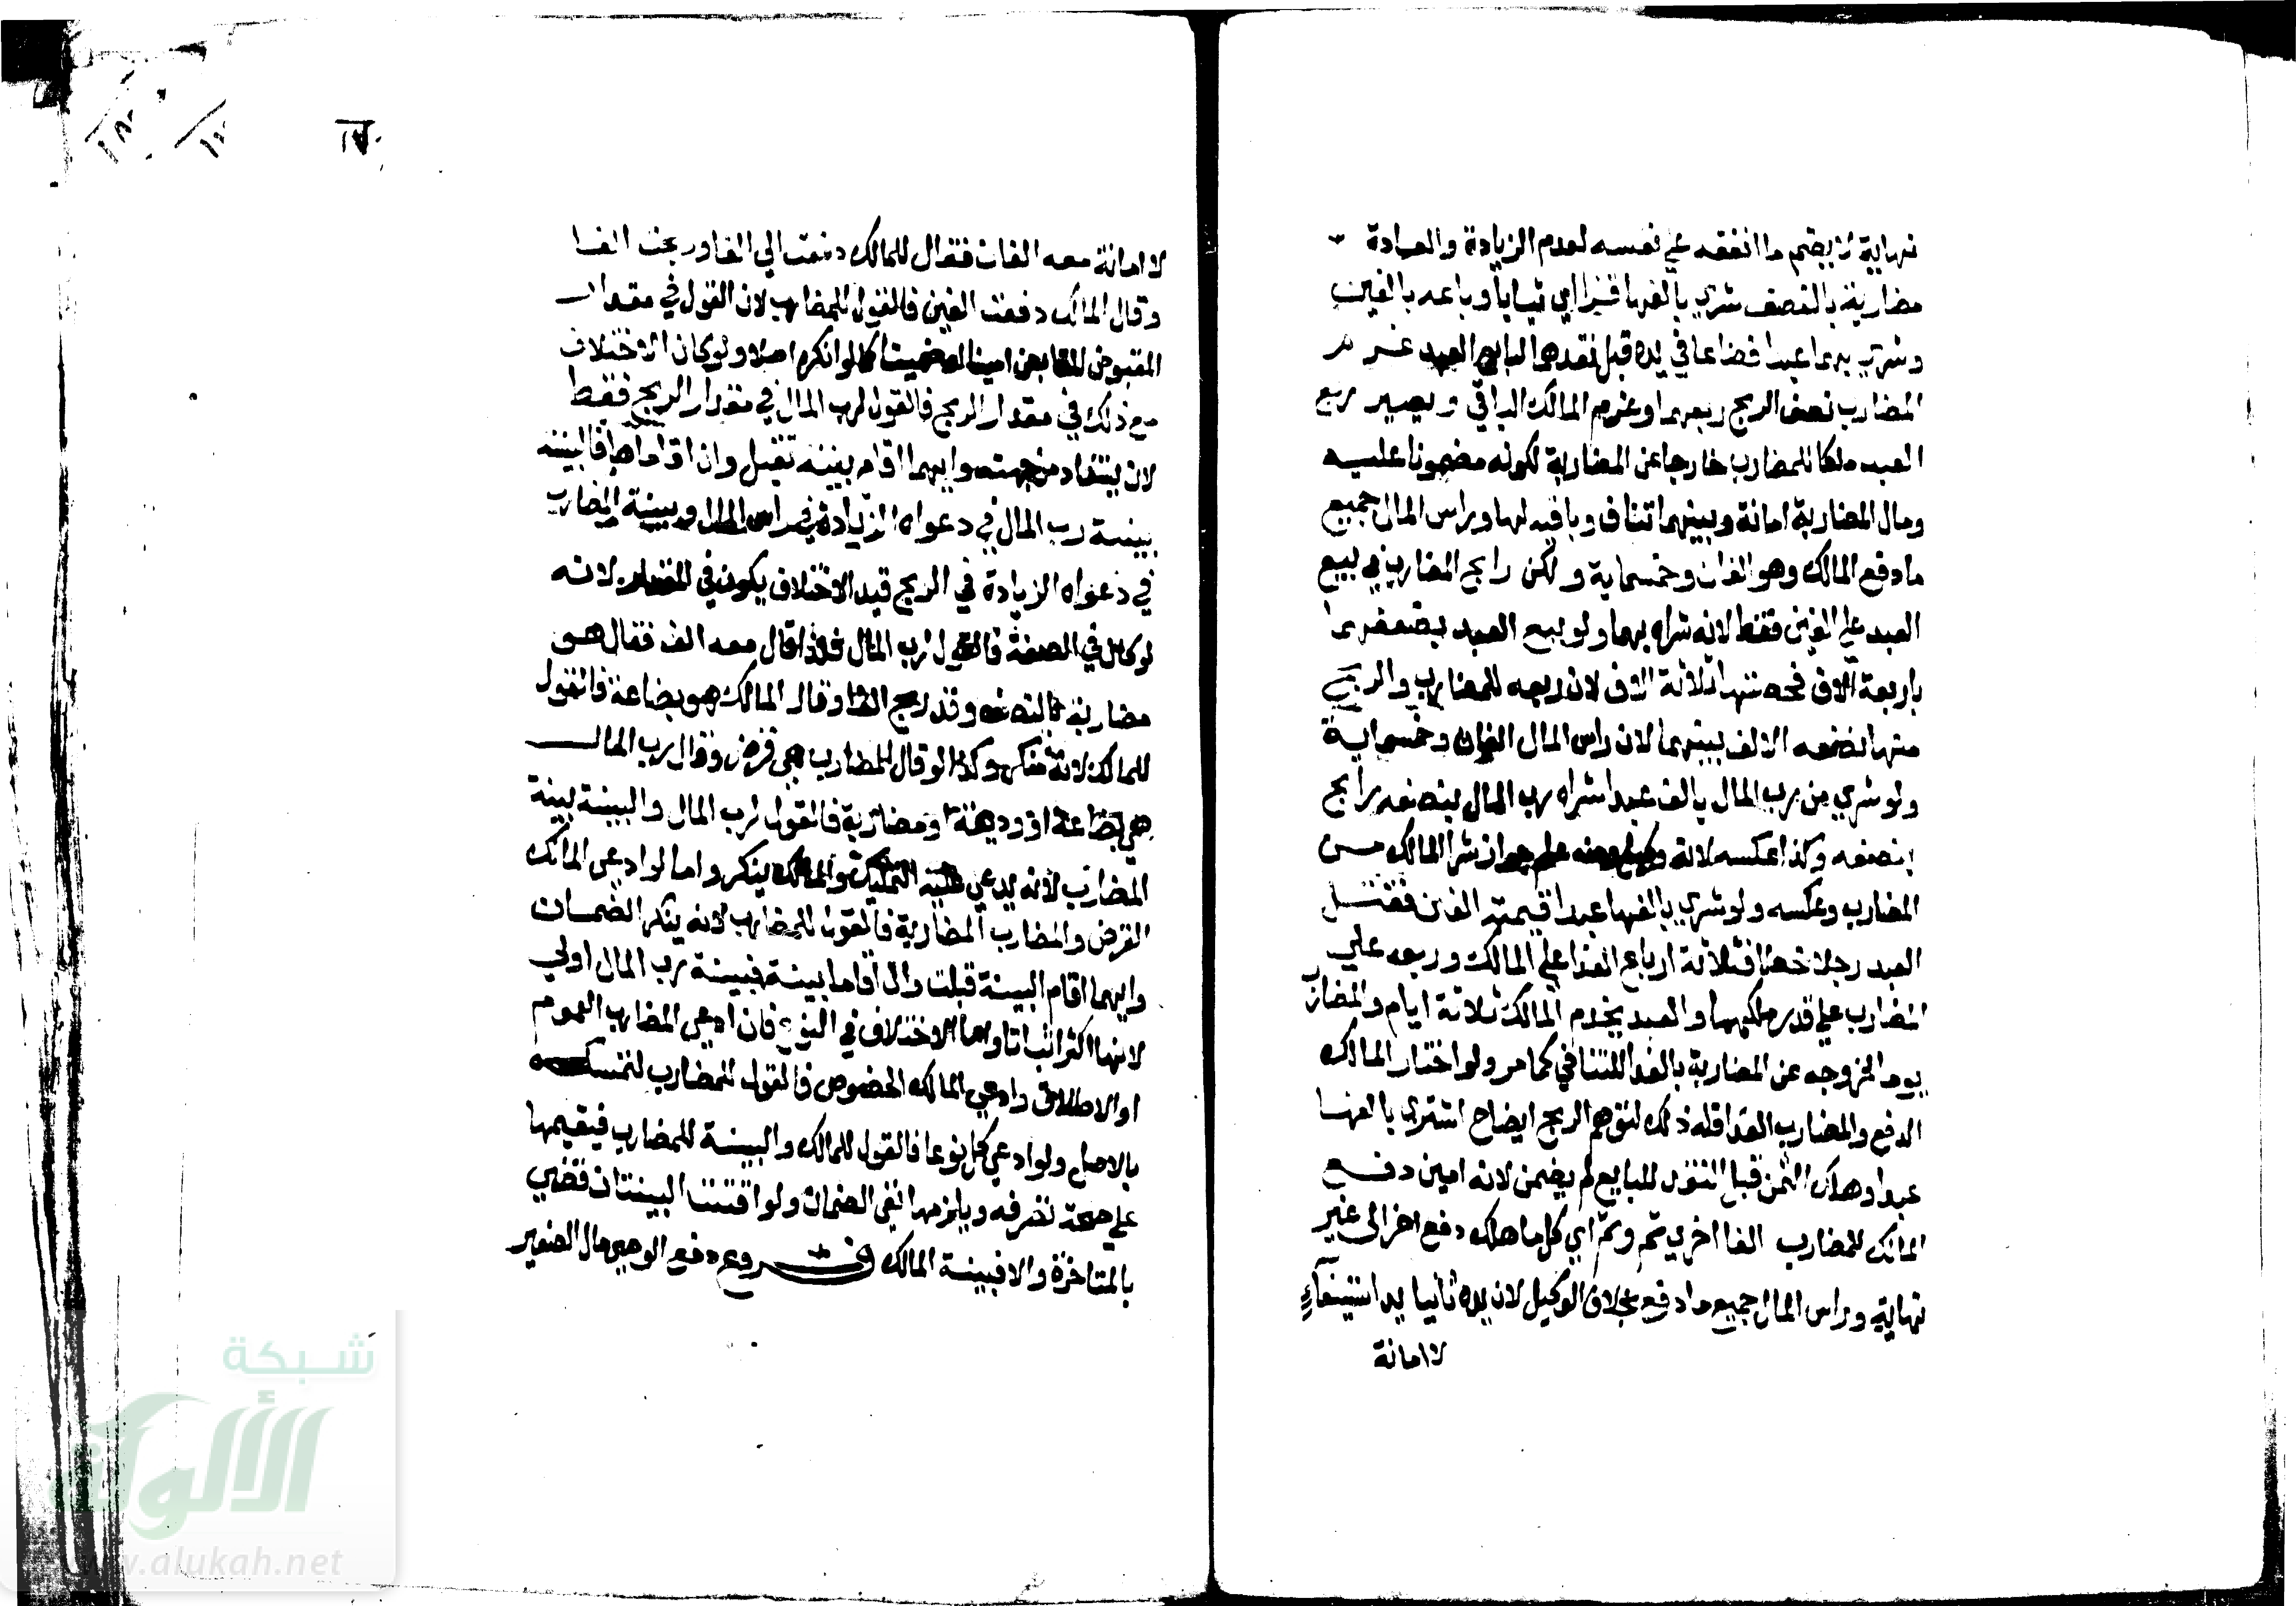 نهاية لا يضم ما انفقه علي نفسه لعدم الزيادة والعادة
مضاربة بالنصف شري بالفها بزا اي ثيابا وباعه بالفين
وشري بهما عبدا فضاعا في يده قبل نقدهما لبايع العبد غرم
المضارب نصف الربح ربعهما وغرم المالك الباقي ويصير ربع
العبد ملكا للمضارب خارجا عن المضاربة لكونه مضمونا عليه
ومال المضاربة امانة وبينهما تناف وباقيه لها وراس المال جميع
ما دفع المالك وهو الفان وخمسماية ولكن رابح المضارب في بيع
العبد علي الفين فقط لانه شراه بهما ولو بيع العبد بضعفهما
باربعة الاف فحصتها ثلاثة الاف لان ربعه للمضارب والربح
منها نصفه الالف بينهما لان راس المال الفان وخمسماية
ولو شري من رب المال بالف عبدا شراه رب المال بنصفه رابح
بنصفه وكذا عكسه لانه وكيله ومنه علم جواز شرا المالك من
المضارب وعكسه ولو شري بالفها عبدا قيمته الفان فقتل
العبد رجلا خطا فثلاثة ارباع الفدا علي المالك وربعه علي
المضارب علي قدر ملكهما والعبد يخدم المالك ثلاثة ايام والمضارب
يوما لخروجه عن المضاربة بالفدا للتنافي كما مر ولو اختار المالك
الدفع والمضارب الفدا فله ذلك لتوهم الربح ايضاح اشتري بالفها
عبدا وهلك الثمن قبل النقد للبايع لم يضمن لانه امين دفع
المالك للمضارب الفا اخري ثم وثم اي كل ما هلك دفع اخر الي غير
نهاية وراس المال جميع ما دفع بخلاف الوكيل لان يده ثانيا يد استيفاء
لا امانة
١٧٠
لا امانة معه الفان فقال للمالك دفعت الي الفا وربحت الفا
وقال المالك دفعت الفين فالقول للمضارب لان القول في مقدار
المقبوض للقابض امينا او ضمينا كما لو انكره اصلا ولو كان الاختلاف
مع ذلك في مقدار الربح فالقول لرب المال في مقدار الربح فقط
لانه يستفاد من جهته وايهما اقام بينة تقبل وان اقاماها فالبينة
بينة رب المال في دعواه الزيادة في راس المال وبينة المضارب
في دعواه الزيادة في الربح قيد الاختلاف بكونه في المقدار لانه
لو كان في الصفة فالقول لرب المال فلذا قال معه الف فقال هو
مضاربة بالنصف وقد ربح الفا وقال المالك هو بضاعة فالقول
للمالك لانه منكر وكذا لو قال المضارب هي قرض وقال رب المال
هي بضاعة او وديعة او مضاربة فالقول لرب المال والبينة بينة
المضارب لانه يدعي عليه التمليك والمالك ينكر واما لو ادعي المالك
القرض والمضارب المضاربة فالقول للمضارب لانه ينكر الضمان
وايهما اقام البينة قبلت وان اقاما بينة فبينة رب المال اولي
لانها اكثر اثباتا واما الاختلاف في النوع فان ادعي المضارب العموم
او الاطلاق وادعي المالك الخصوص فالقول للمضارب لتمسكه
بالاصل ولو ادعي كل نوعا فالقول للمالك والبينة للمضارب فيقيمها
علي صحة تصرفه ويلزمها نفي الضمان ولو اقتتا البينتان قضي
بالمتاخرة والا فبينة المالك فروع دفع الوصي مال الصغير
شبكة
الألوكة
www.alukah.net